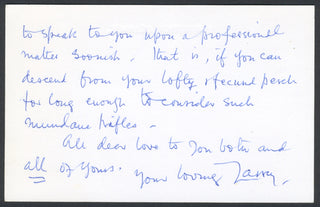 to speak to you upon a professional
matter soonish. That is, if you can
descend from your lofty & fecund perch
for long enough to consider such
mundane trifles -
All dear love to you both and
all of yours. your loving Larry.